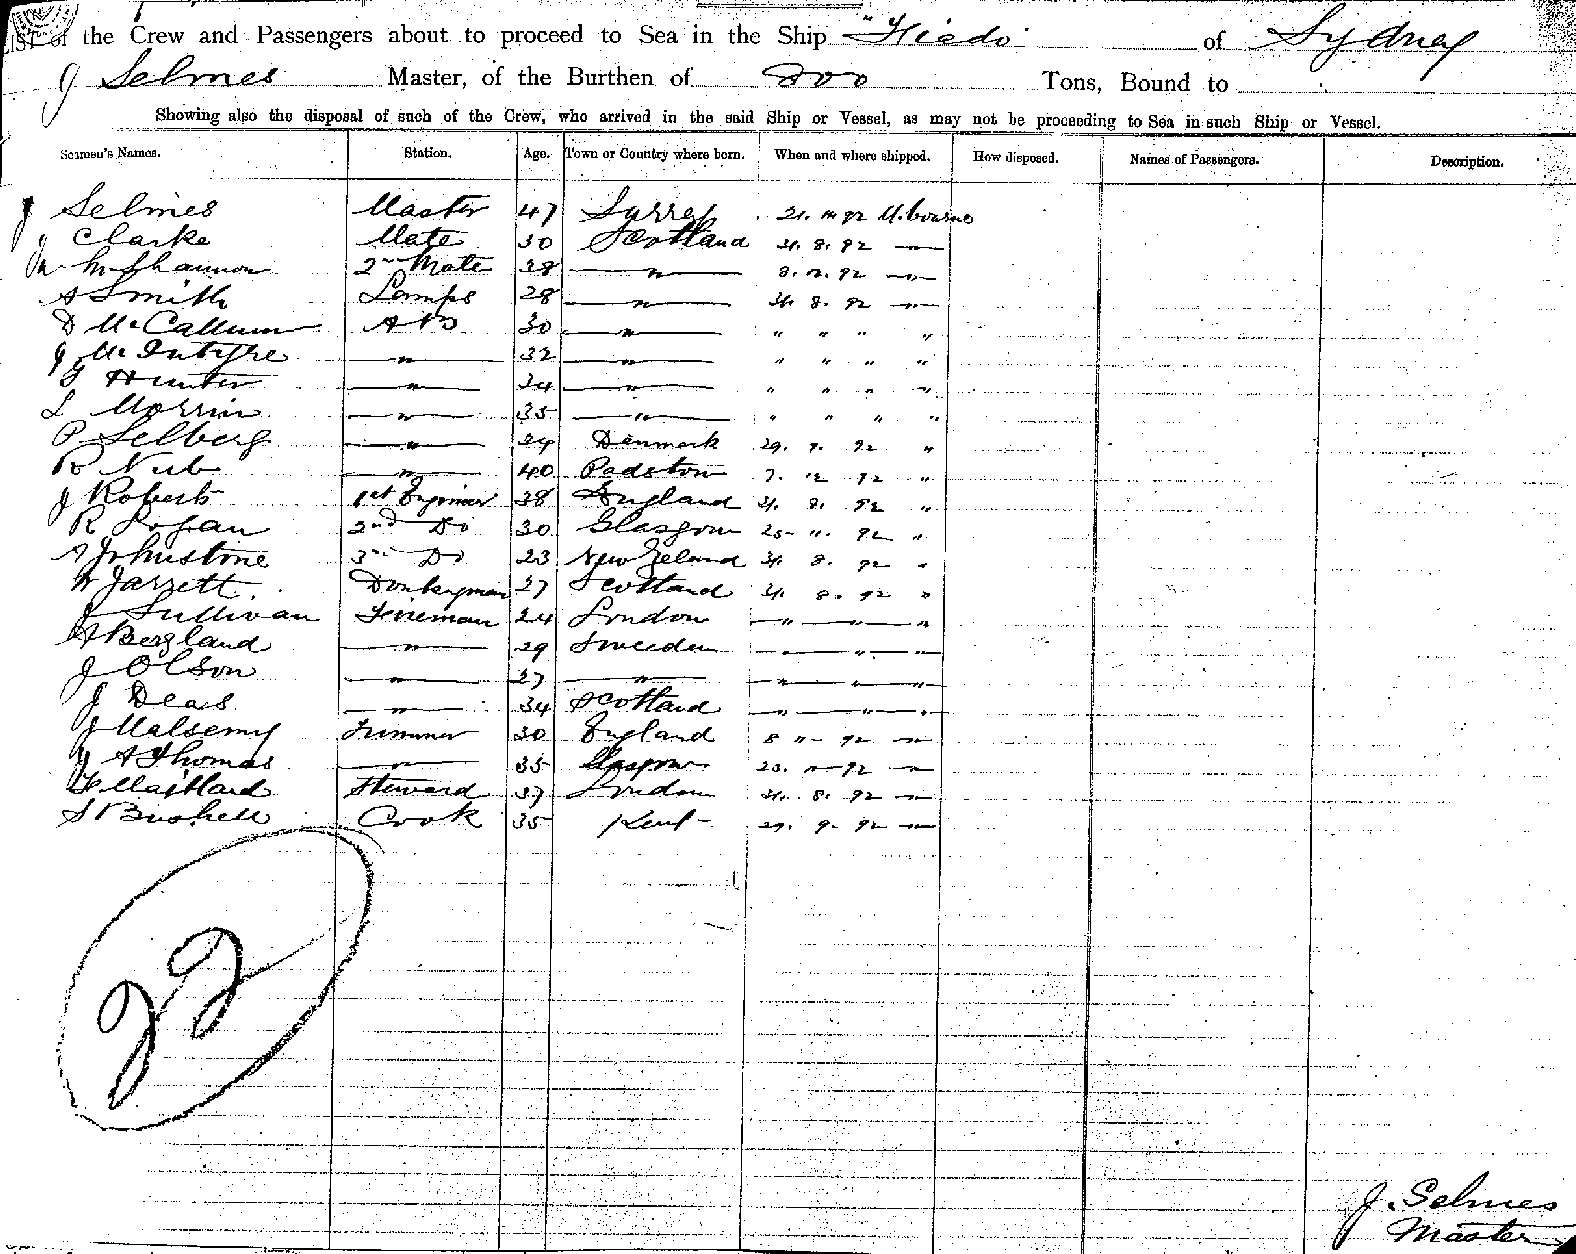 LIST of the Crew and Passengers about to proceed to Sea in the Ship "Hiedo" of Sydney
J Selmes Master, of the Burthen of Tons, Bound to
Showing also the disposal of such of the Crew, who arrived in the said Ship or Vessel, as may not be proceeding to Sea in such Ship or Vessel.
Seamen's Names. Station. Age. Town or Country where born. When and where shipped. How disposed. Names of Passengers. Description.
J Selmes Master 47 Surrey 21. 92 Mbourne
J Clarke Mate 30 Scotland 31. 8. 92 — " —
Shannon 2nd Mate 28 — " — 8. 12. 92 — " —
A Smith Lamps 28 — " — 31. 8. 92 — " —
D McCallum AB 30 — " — " " " "
J McIntyre — " — 32 — " — " " " "
G Hunter — " — 24 — " — " " " "
L Morrin — " — 35 — " — " " " "
P Selberg — " — 24 Denmark 29. 9. 92 "
R — " — 40 Padstow 7. 12 92 "
J Roberts 1st Engineer 38 England 31. 8. 92 "
R Logan 2nd Do 30 Glasgow 25 " 92 "
A Johnstone 3rd Do 23 New Zeland 31. 8. 92 "
W Jarrett. Donkeyman 27 Scotland 31. 8. 92 "
J Sullivan Fireman 24 London — " — " — "
A Bergland — " — 29 Sweden — " — " — "
J Olson — " — 27 — " — — " — " — "
J Deas — " — 34 Scotland — " — " — "
J Trimmer 30 England 8 " 92 — " —
J A Thomas — " — 35 Glasgow 23. " 92 — " —
F Maitland Steward 37 London 31. 8. 92 — " —
S Bushell Cook 35 Kent 29. 9. 92 — " —
22
J. Selmes
Master